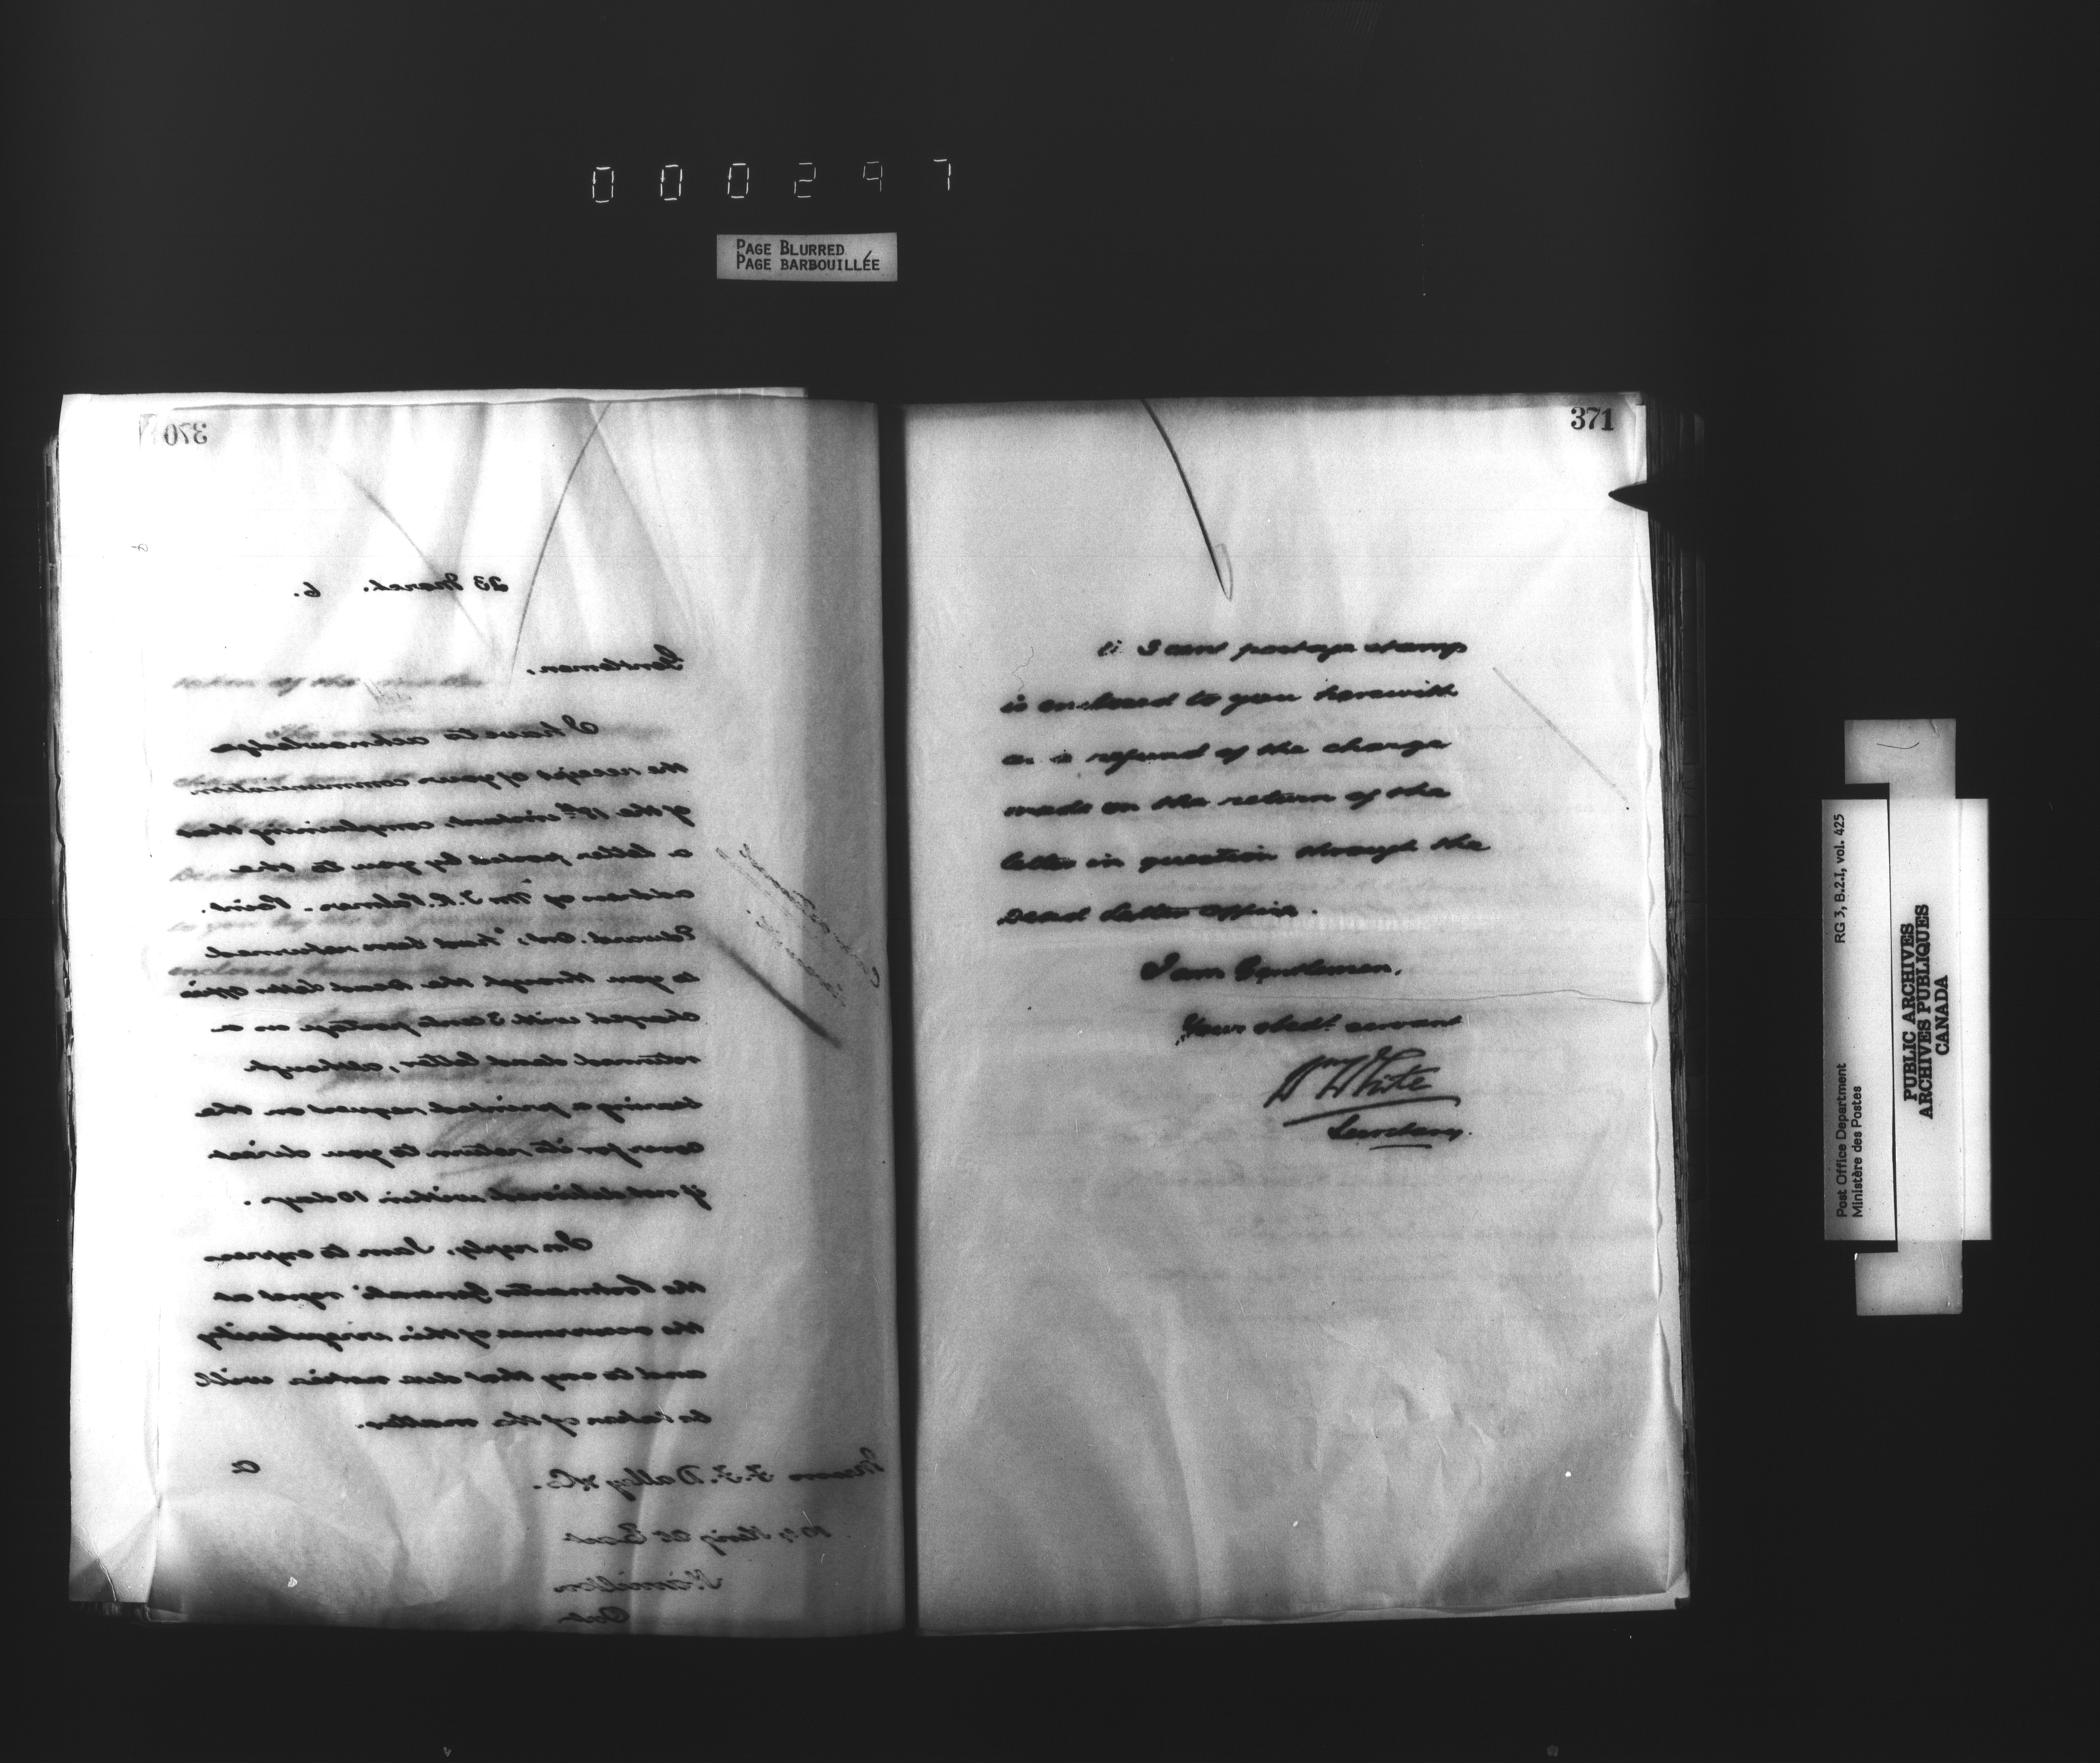 000297
PAGE BLURRED
PAGE BARBOUILLÉE
370
23 March. 6.
Gentlemen,
I have to acknowledge
the receipt of your communication
of the 18th instant, complaining that
a letter posted by you to the
address of "Mr J. R. Palmer. Point.
Edward. Ont," had been returned
to you through the Dead letter office
charged with 3 cents postage as a
returned dead letter, although
bearing a printed request on the
cover for its return to you direct
if not delivered within 10 days.
In reply, I am to express
the Postmaster General's regret at
the occurrence of this irregularity
and to say that due notice will
be taken of the matter.
Messrs F. F. Dalley & Co.
107 King St East
Hamilton
Ont
371
A 3 cent postage stamp
is enclosed to you herewith
as a refund of the charge
made on the return of the
letter in question through the
Dead Letter Office.
I am Gentlemen,
Your obedt. servant
Wm White
Secretary.
Post Office Department
Ministère des Postes
RG 3, B.2.I, vol. 425
PUBLIC ARCHIVES
ARCHIVES PUBLIQUES
CANADA